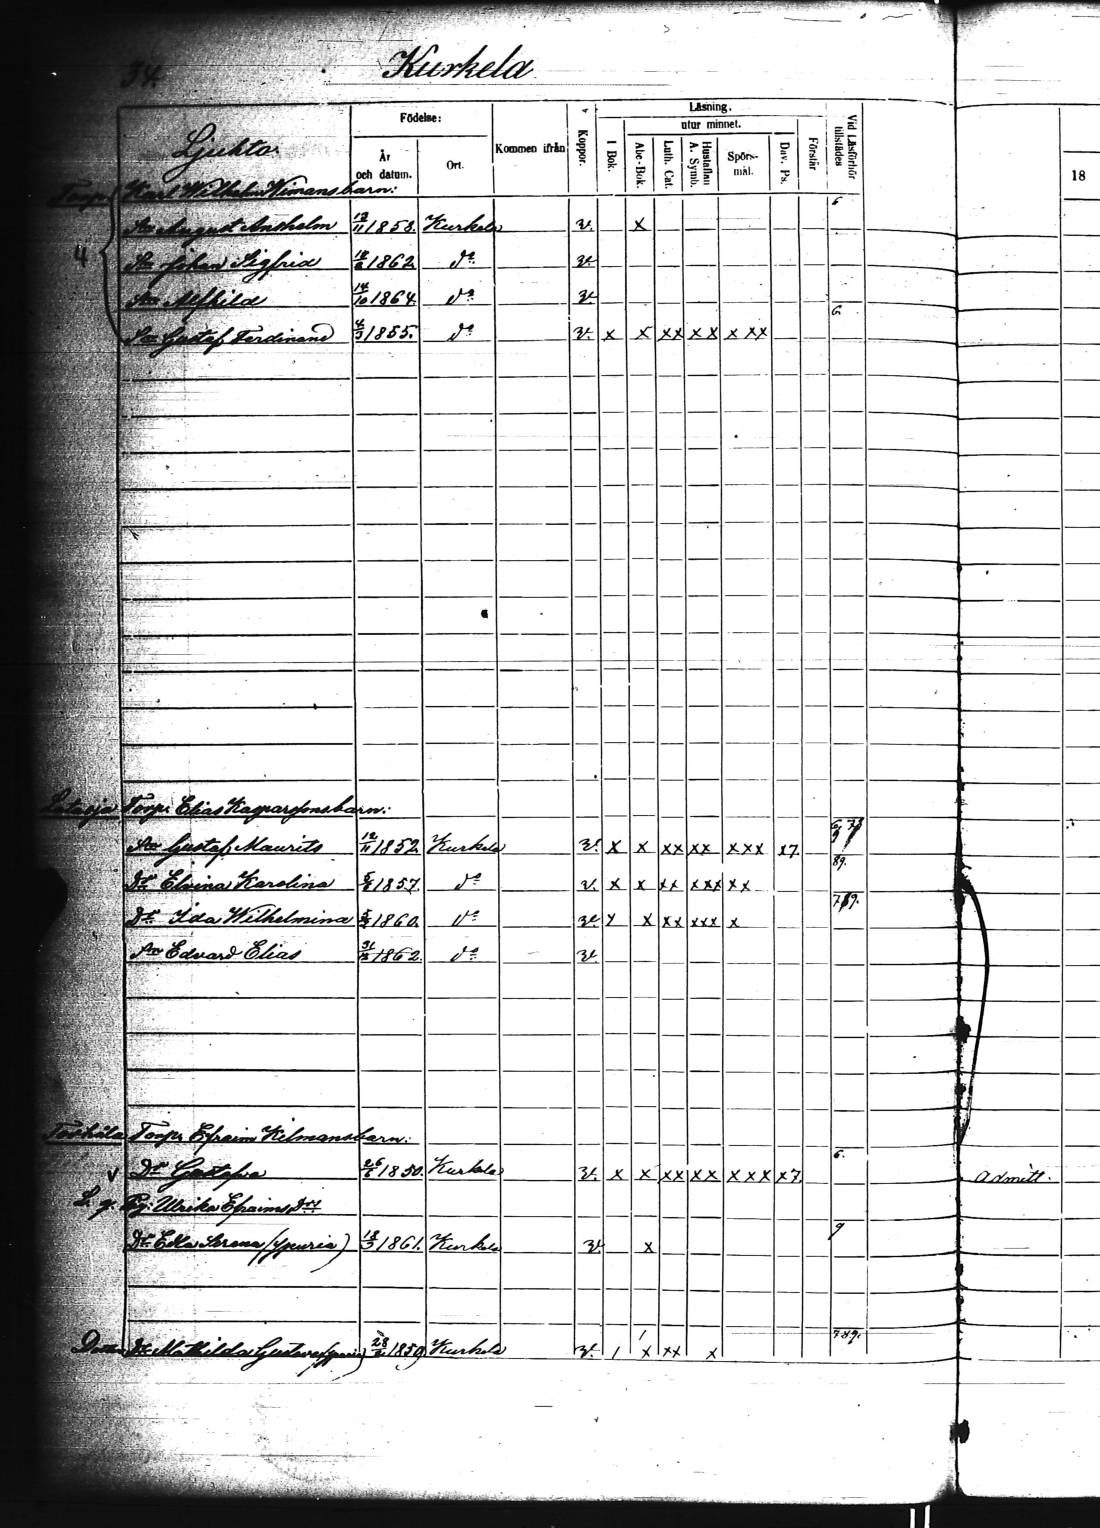 34.
Kurkela
Ljuhto.
Födelse:
År och datum.
Ort.
Kommen ifrån
Koppor.
Läsning.
utur minnet.
I Bok.
Abc-Bok.
Luth. Cat.
Hustaflan A. Symb.
Spörs-mål.
Dav. Ps.
Förstår
Vid Läsförhör tillstädes
18
Torp. Karl Wilhelm Wimans barn: 6
4
Sn August Ansholm 12/11 1853. Kurkela v. x
Sn Johan Sigfrid 1862 do v.
Alfhild 14/10 1864 do v. 6
Sn Gustaf Ferdinand 4/3 1855. do v. x x xx xx x xx
Torp. Elias Kasparssons barn:
Sn Gustaf Maurits 12/11 1852 Kurkela v. x x xx xx xxx x7
89.
Dr Elvina Karolina 1857. do v. x x xx xxx xx
789.
Dr Ida Wilhelmina 1860. do v. x xx xxx x
Sn Edvard Elias 1862. do v.
Torp. Efraim Kilmans barn:
6.
v Dr Gustafva 26/6 1850. Kurkela v. x x xx xx xxx x7. admitt.
Pig. Ulrika Efraims Dr
9
Dr Edla Serena (spuria) 18/3 1861. Kurkela v. x
789.
Dr Mathilda Gustava (spuria) 1850 Kurkela v. / x xx x